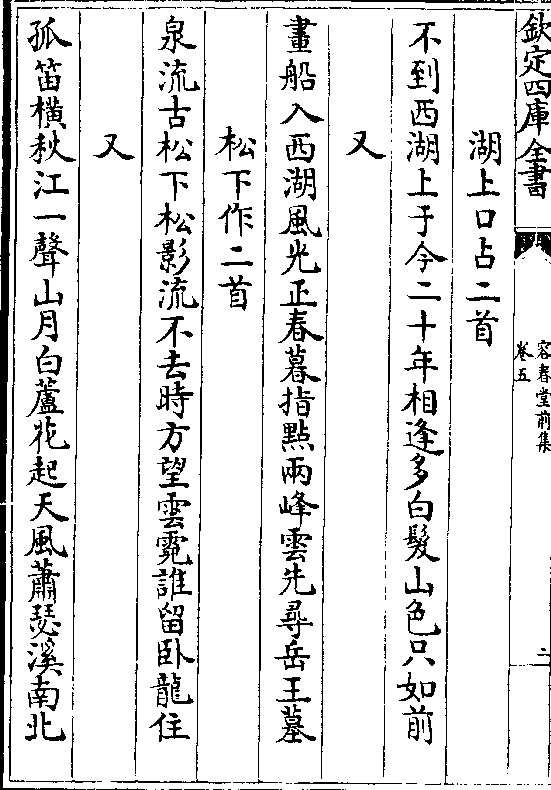 欽定四庫全書
容春堂前集
卷五
二
湖上口占二首
不到西湖上于今二十年相逢多白髮山色只如前
又
畫船入西湖風光正春暮指點兩峰雲先尋岳王墓
松下作二首
泉流古松下松影流不去時方望雲霓誰留卧龍住
又
孤笛橫秋江一聲山月白蘆花起天風蕭瑟溪南北